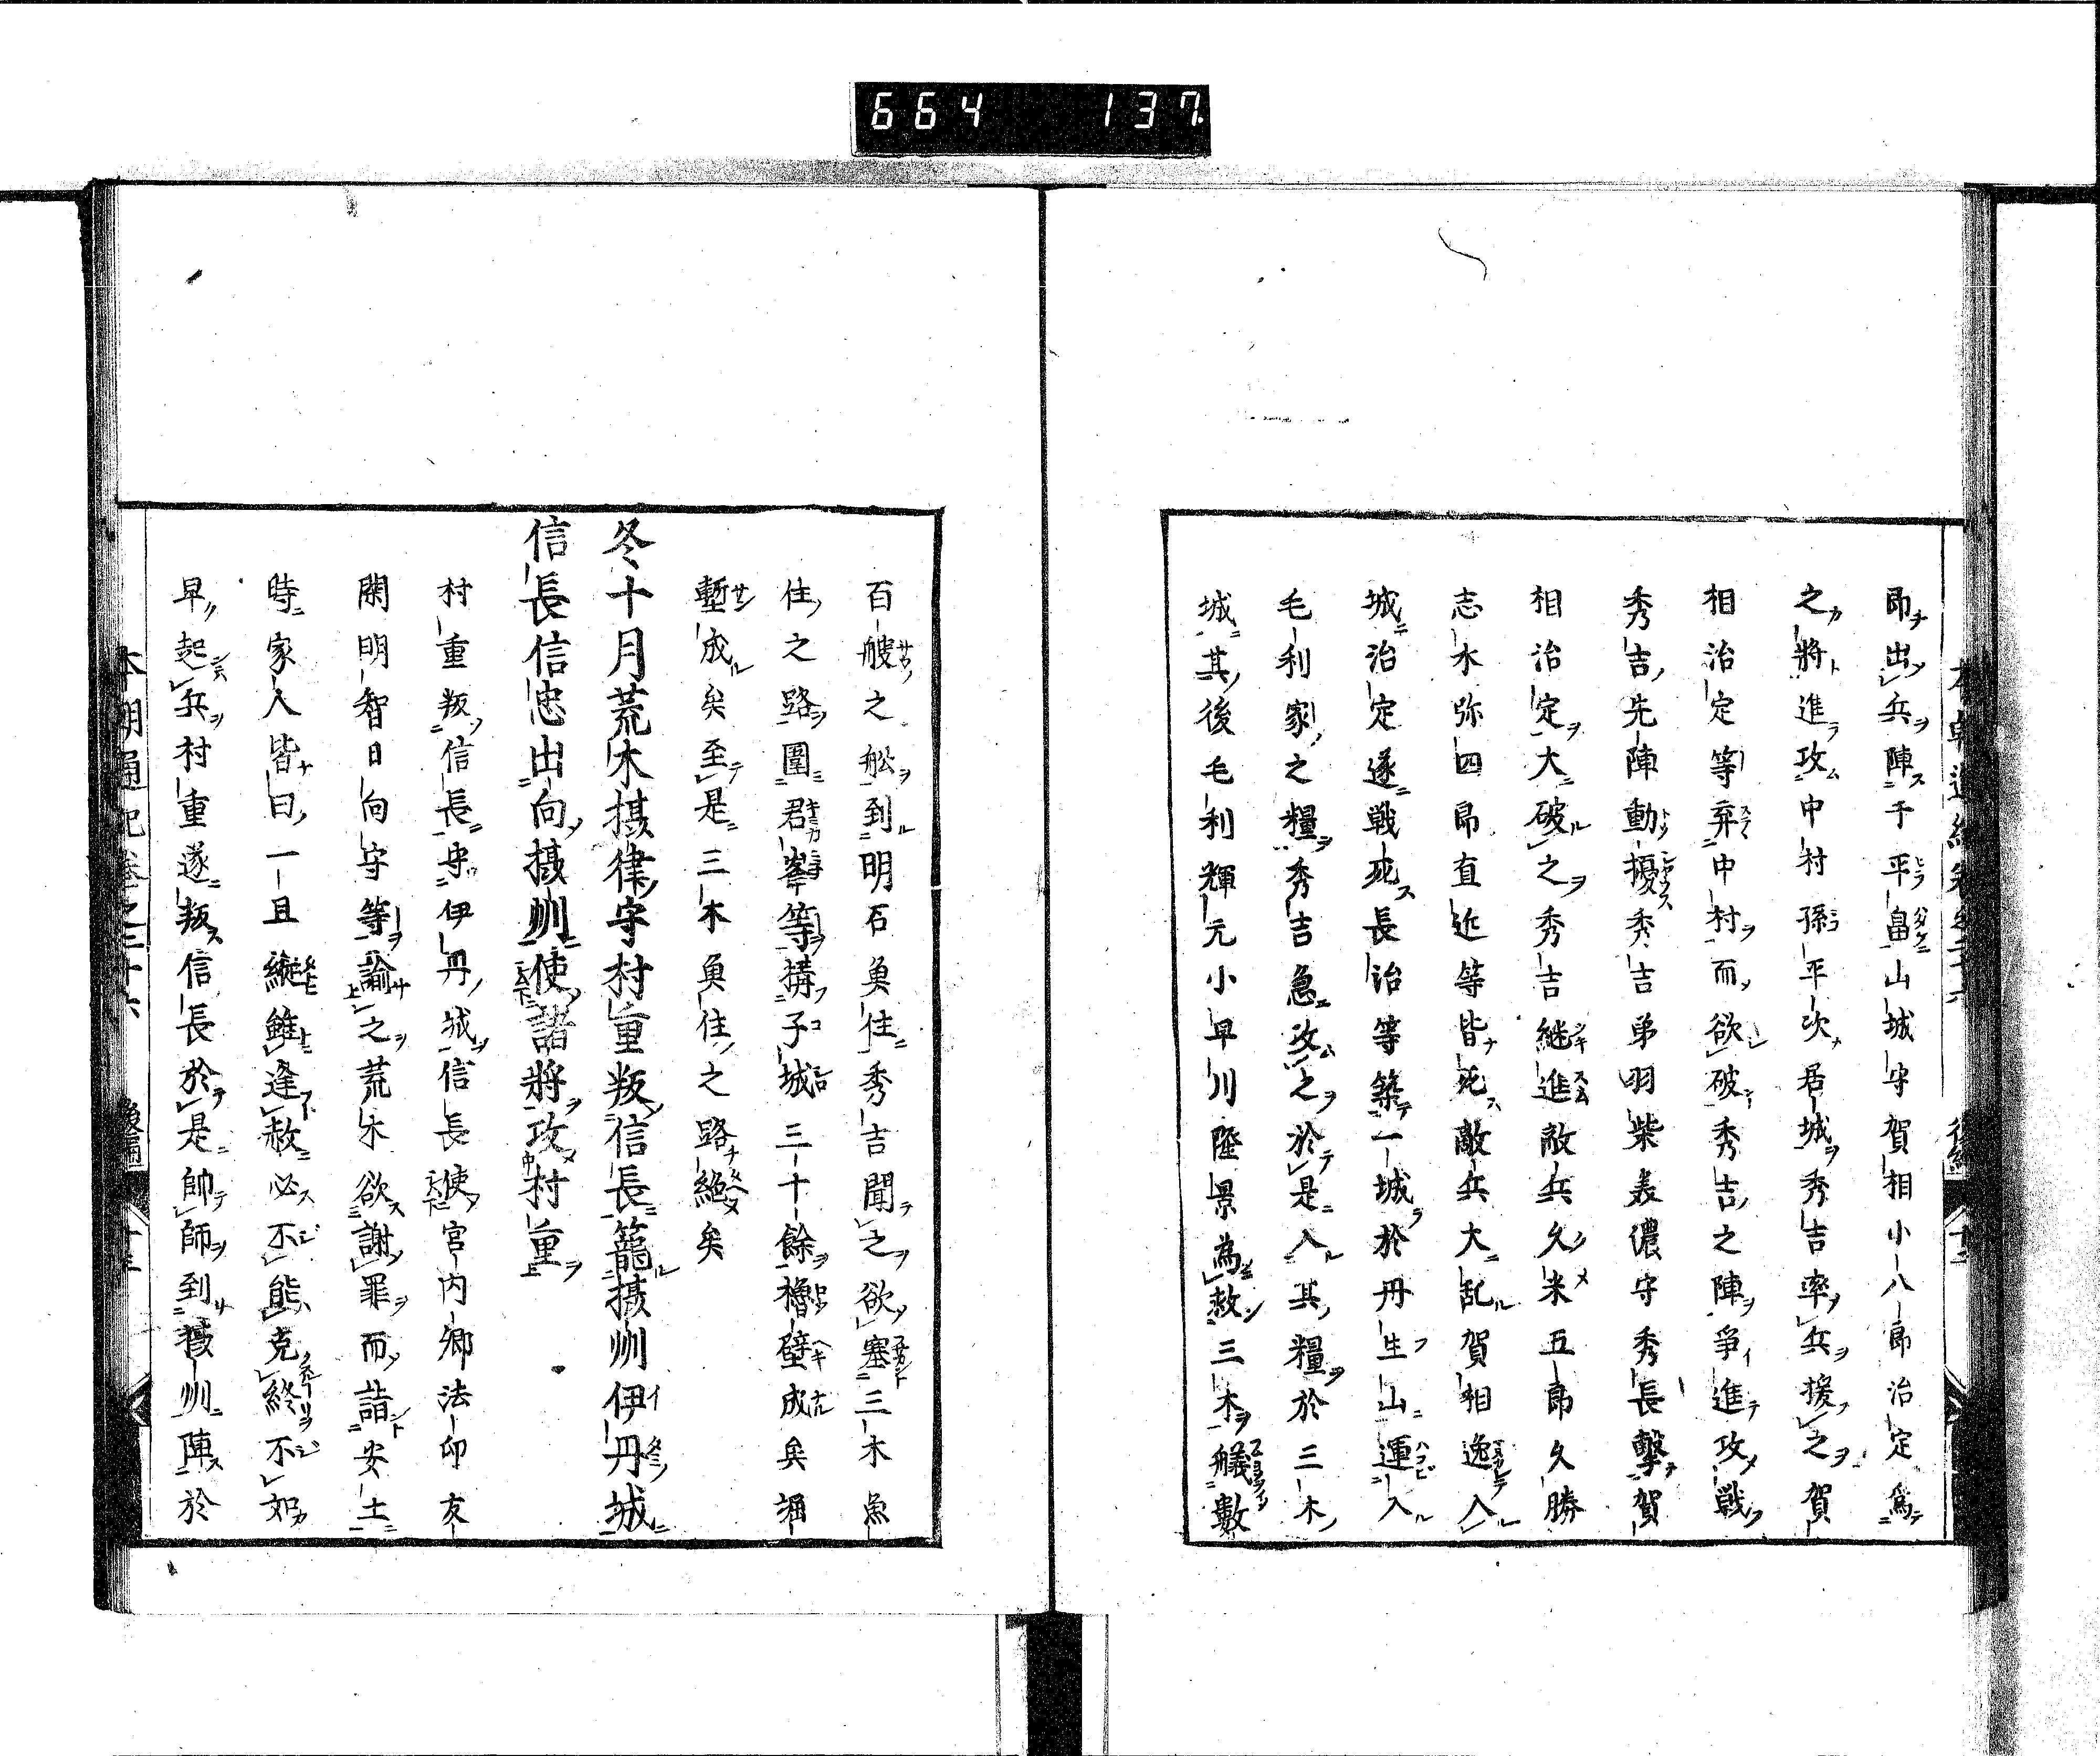 664 137
即出兵陣于平畠山城守賀相小八郎治定爲
之將進攻中村孫平次居城秀吉率兵援之賀
相治定等棄中村而欲破秀吉之陣爭進攻戰
秀吉先陣動擾秀吉弟羽柴美濃守秀長擊賀
相治定大破之秀吉継進敵兵久米五郎久勝
志水弥四郎直近等皆死敵兵大乱賀相逸入
城治定遂戰死長治等築一城於丹生山運入
毛利家之糧秀吉急攻之於是入其糧於三木
城其後毛利輝元小早川隆景為救三木艤數
百艘之舩到明石魚住秀吉聞之欲塞三木魚
住之路圍君峯等搆子城三十餘櫓壁成矣堀
塹成矣至是三木魚住之路絶矣
冬十月荒木摂津守村重叛信長籠摂州伊丹城
信長信忠出向摂州使諸將攻村重
村重叛信長守伊丹城信長使宮内卿法印友
閑明智日向守等諭之荒木欲謝罪而詣安土
時家人皆曰一旦縱雖逢赦必不能克終不如
早起兵村重遂叛信長於是帥師到摂州陣於
本朝通紀巻之二十六 後編 十三